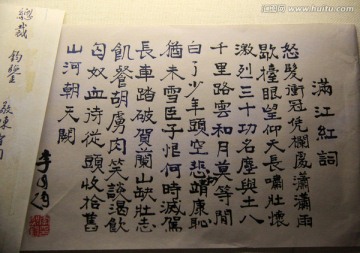 滿江紅詞
怒髮衝冠凭欄處瀟瀟雨
歇擡眼望仰天長嘯壯懷
激烈三十功名塵與土八
千里路雲和月莫等閒
白了少年頭空悲靖康恥
猶未雪臣子恨何時滅駕
長車踏破賀蘭山缺壯志
飢餐胡虜肉笑談渴飲
匈奴血待從頭收拾舊
山河朝天闕
總裁
鈞鑒